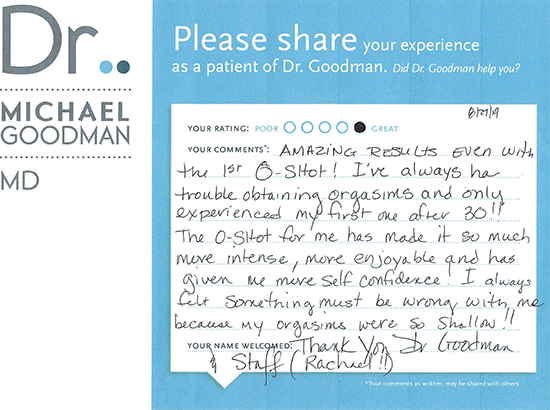 Dr..
MICHAEL
GOODMAN
MD
Please share your experience
as a patient of Dr. Goodman. Did Dr. Goodman help you?
8/27/19
YOUR RATING: POOR GREAT
YOUR COMMENTS*: AMAZING RESULTS EVEN WITH
the 1st O-SHot! I've always ha
trouble obtaining orgasims and only
experienced my first one after 30!!
The O-SHot for me has made it so much
more intense, more enjoyable and has
given me more self confidence! I always
felt something must be wrong with me
because my orgasims were so shallow!!
YOUR NAME WELCOMED: Thank You Dr Goodman
& Staff (Rachael!!)
*Your comments as written, may be shared with others.